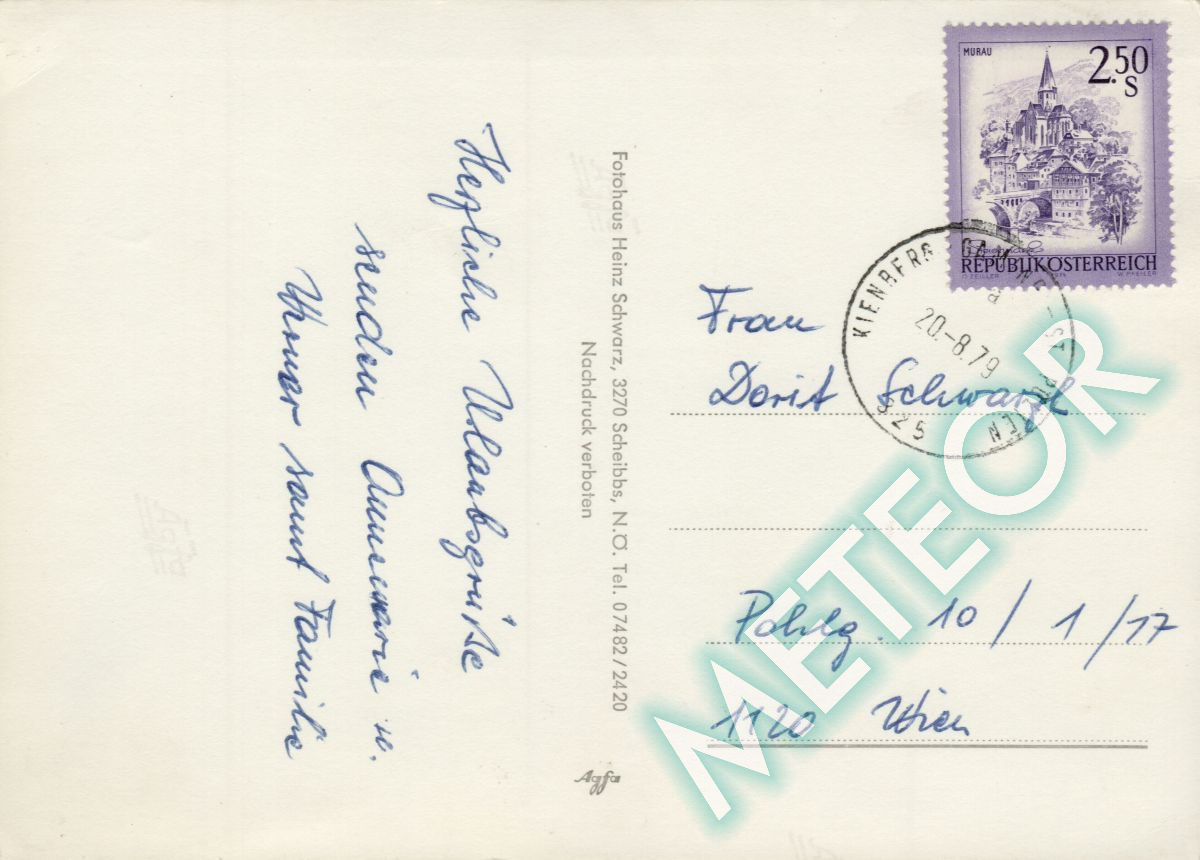 Herzliche Urlaubsgrüße
senden Annemarie u.
Werner samt Familie
Fotohaus Heinz Schwarz, 3270 Scheibbs, N.Ö. Tel. 07482/2420
Nachdruck verboten
Agfa
MURAU
2.50
S
REPUBLIK ÖSTERREICH
O. ZEILLER
W. PFEILER
KIENBERG-GAMING-ST. PÖLTEN
a
20.-8.79
325
Frau
Dorit Schwarzl
Pohlg. 10/1/17
1120 Wien
METEOR